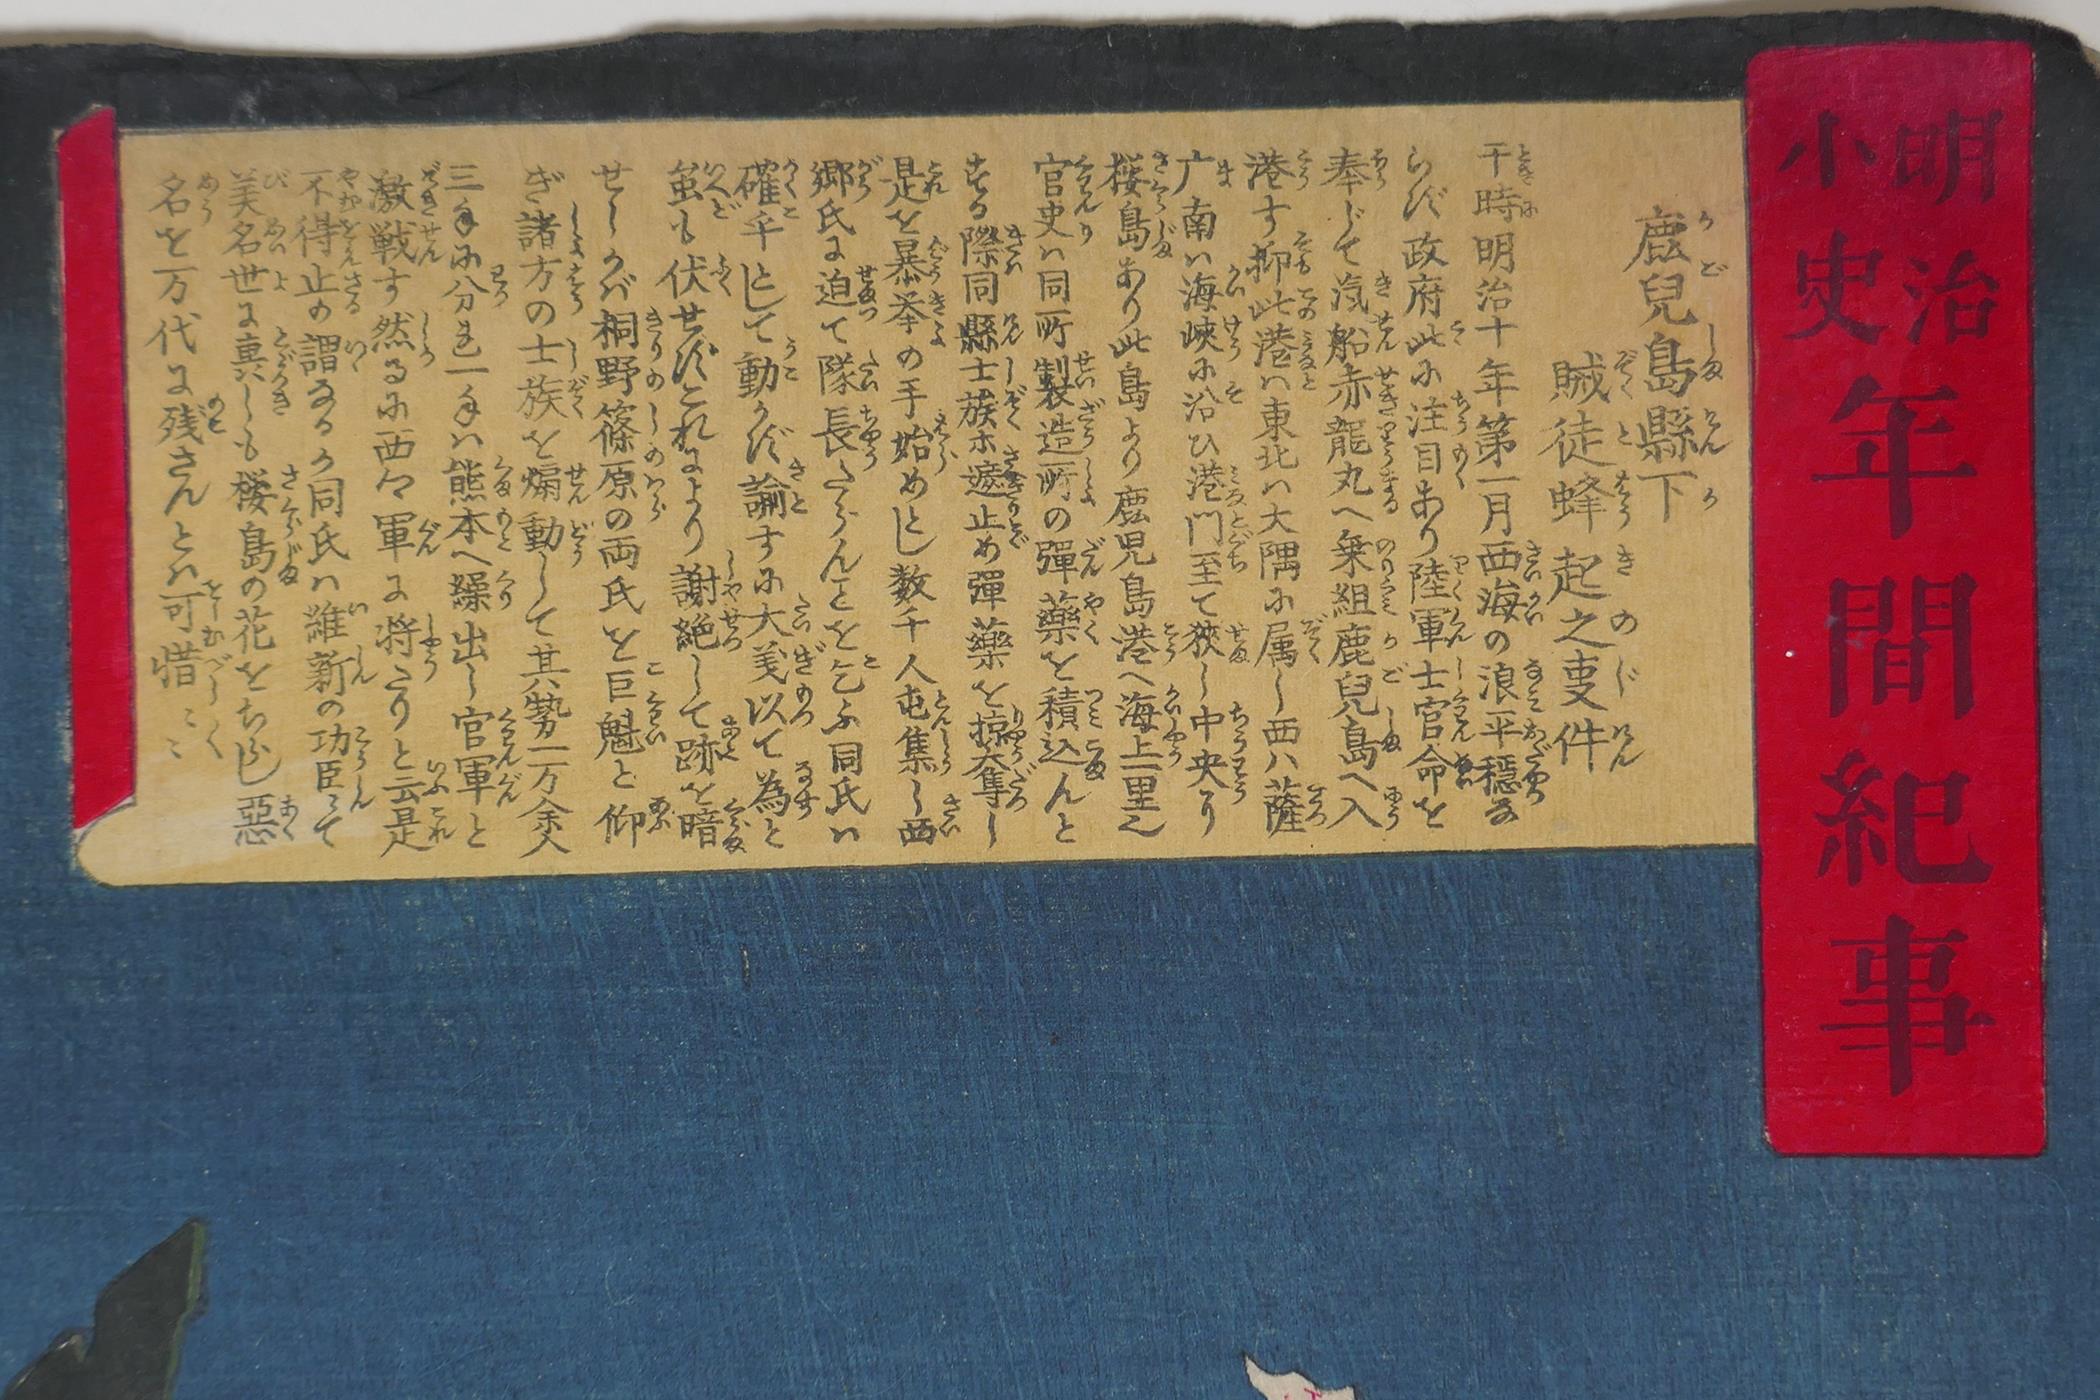 明治
小史
年間紀事
鹿兒島縣下
賊徒蜂起之事件
干時明治十年第一月西海の浪平穏な
らず政府此に注目あり陸軍士官命を
奉じて汽船赤龍丸へ乗組鹿兒島へ入
港す抑此港ハ東北ハ大隅に属し西ハ薩
广南ハ海峽に沿ひ港門至て狹し中央り
桜島あり此島より鹿児島港へ海上一里
官吏ハ同所製造所の彈藥を積込んと
する際同縣士族等遮止め彈藥を掠奪し
是を暴挙の手始めとし数千人屯集し西
郷氏に迫て隊長たらんことを乞ふ同氏ハ
確乎として動かず諭すに大義以て為と
雖も伏せずこれより謝絶して跡を暗
せしかバ桐野篠原の両氏を巨魁と仰
ぎ諸方の士族を煽動して其勢一万余人
三手に分れ一手ハ熊本へ繰出し官軍と
激戦す然るに西々軍に将たりと云是
不得止の謂なるか同氏ハ維新の功臣にて
美名世に轟しも桜島の花をちらし惡
名を万代に残さんとハ可惜〻〻